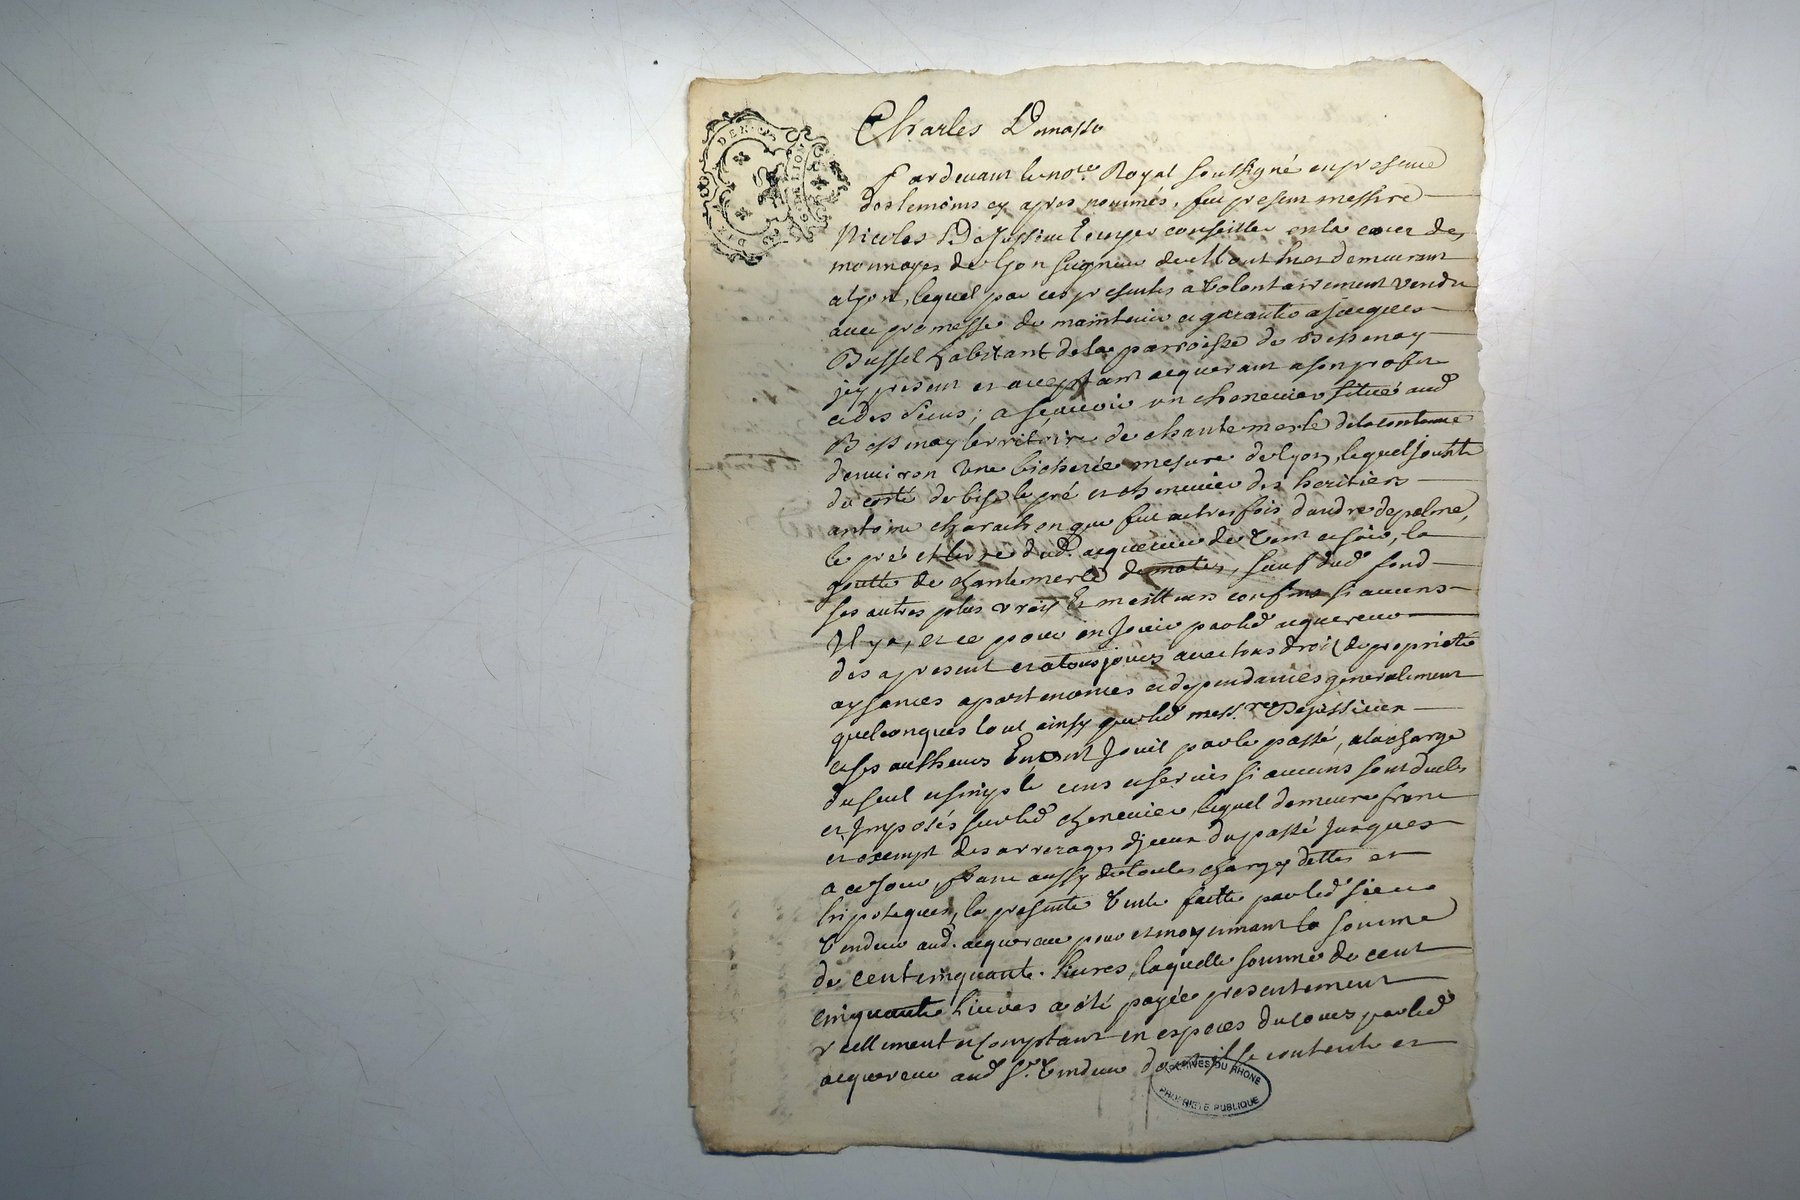 Charles Demasso
Pardevant le no.re Royal soussigné en presence
des temoins cy apres nommés, fut present messire
Nicolas DeJussieu Ecuyer conseiller en la cour des
monnoyes de Lyon seigneur de Montluel demeurant
a Lyon, lequel par ces presentes a volontairement vendu
avec promesse de maintenir et garantir a Jacques
Bussel habitant de la parroisse de Bessenay
jcy present et acceptant acquerant a son profit
et des siens; a sçavoir un chenevier situé aud.
Bessenay territoire de chantemerle de la contenue
denviron une bicherée mesure de Lyon, lequel jouxte
du costé de bise le pré et chenevier des heritiers
antoine charachon que fut autresfois d'andre depalme,
le pré et terre dud. acquereur de vent et soir, la
goutte de chantemerle de matin, sauf dud. fond
ses autres plus vrays et meilleurs confins si aucuns
Il y a, et ce pour en jouir par led. acquereur
des apresent et a tousjours avec tous droits de proprieté
aysances apartenances et dependances generalement
quelconques tout ainsy que led. mess.re Dejussieu
et ses autheurs En ont Jouit par le passé, a la charge
du seul et simple cens et servis si aucuns sont dues
et Imposés sur led. chenevier, lequel demeure franc
et exempt des arrerages d'jceux du passé Jusques
a ce jour, franc aussy de toutes charges dettes et
hipoteques, la presente vente faitte par led. sieur
vendeur aud. acquereur pour et moyennant la somme
de cent cinquante livres, laquelle somme de cent
cinquante livres a été payée presentement
reellement et comptant en especes du cours par led.
acquereur aud. Sr. vendeur dont il se contente et
ARCHIVES DU RHONE
PROPRIÉTÉ PUBLIQUE